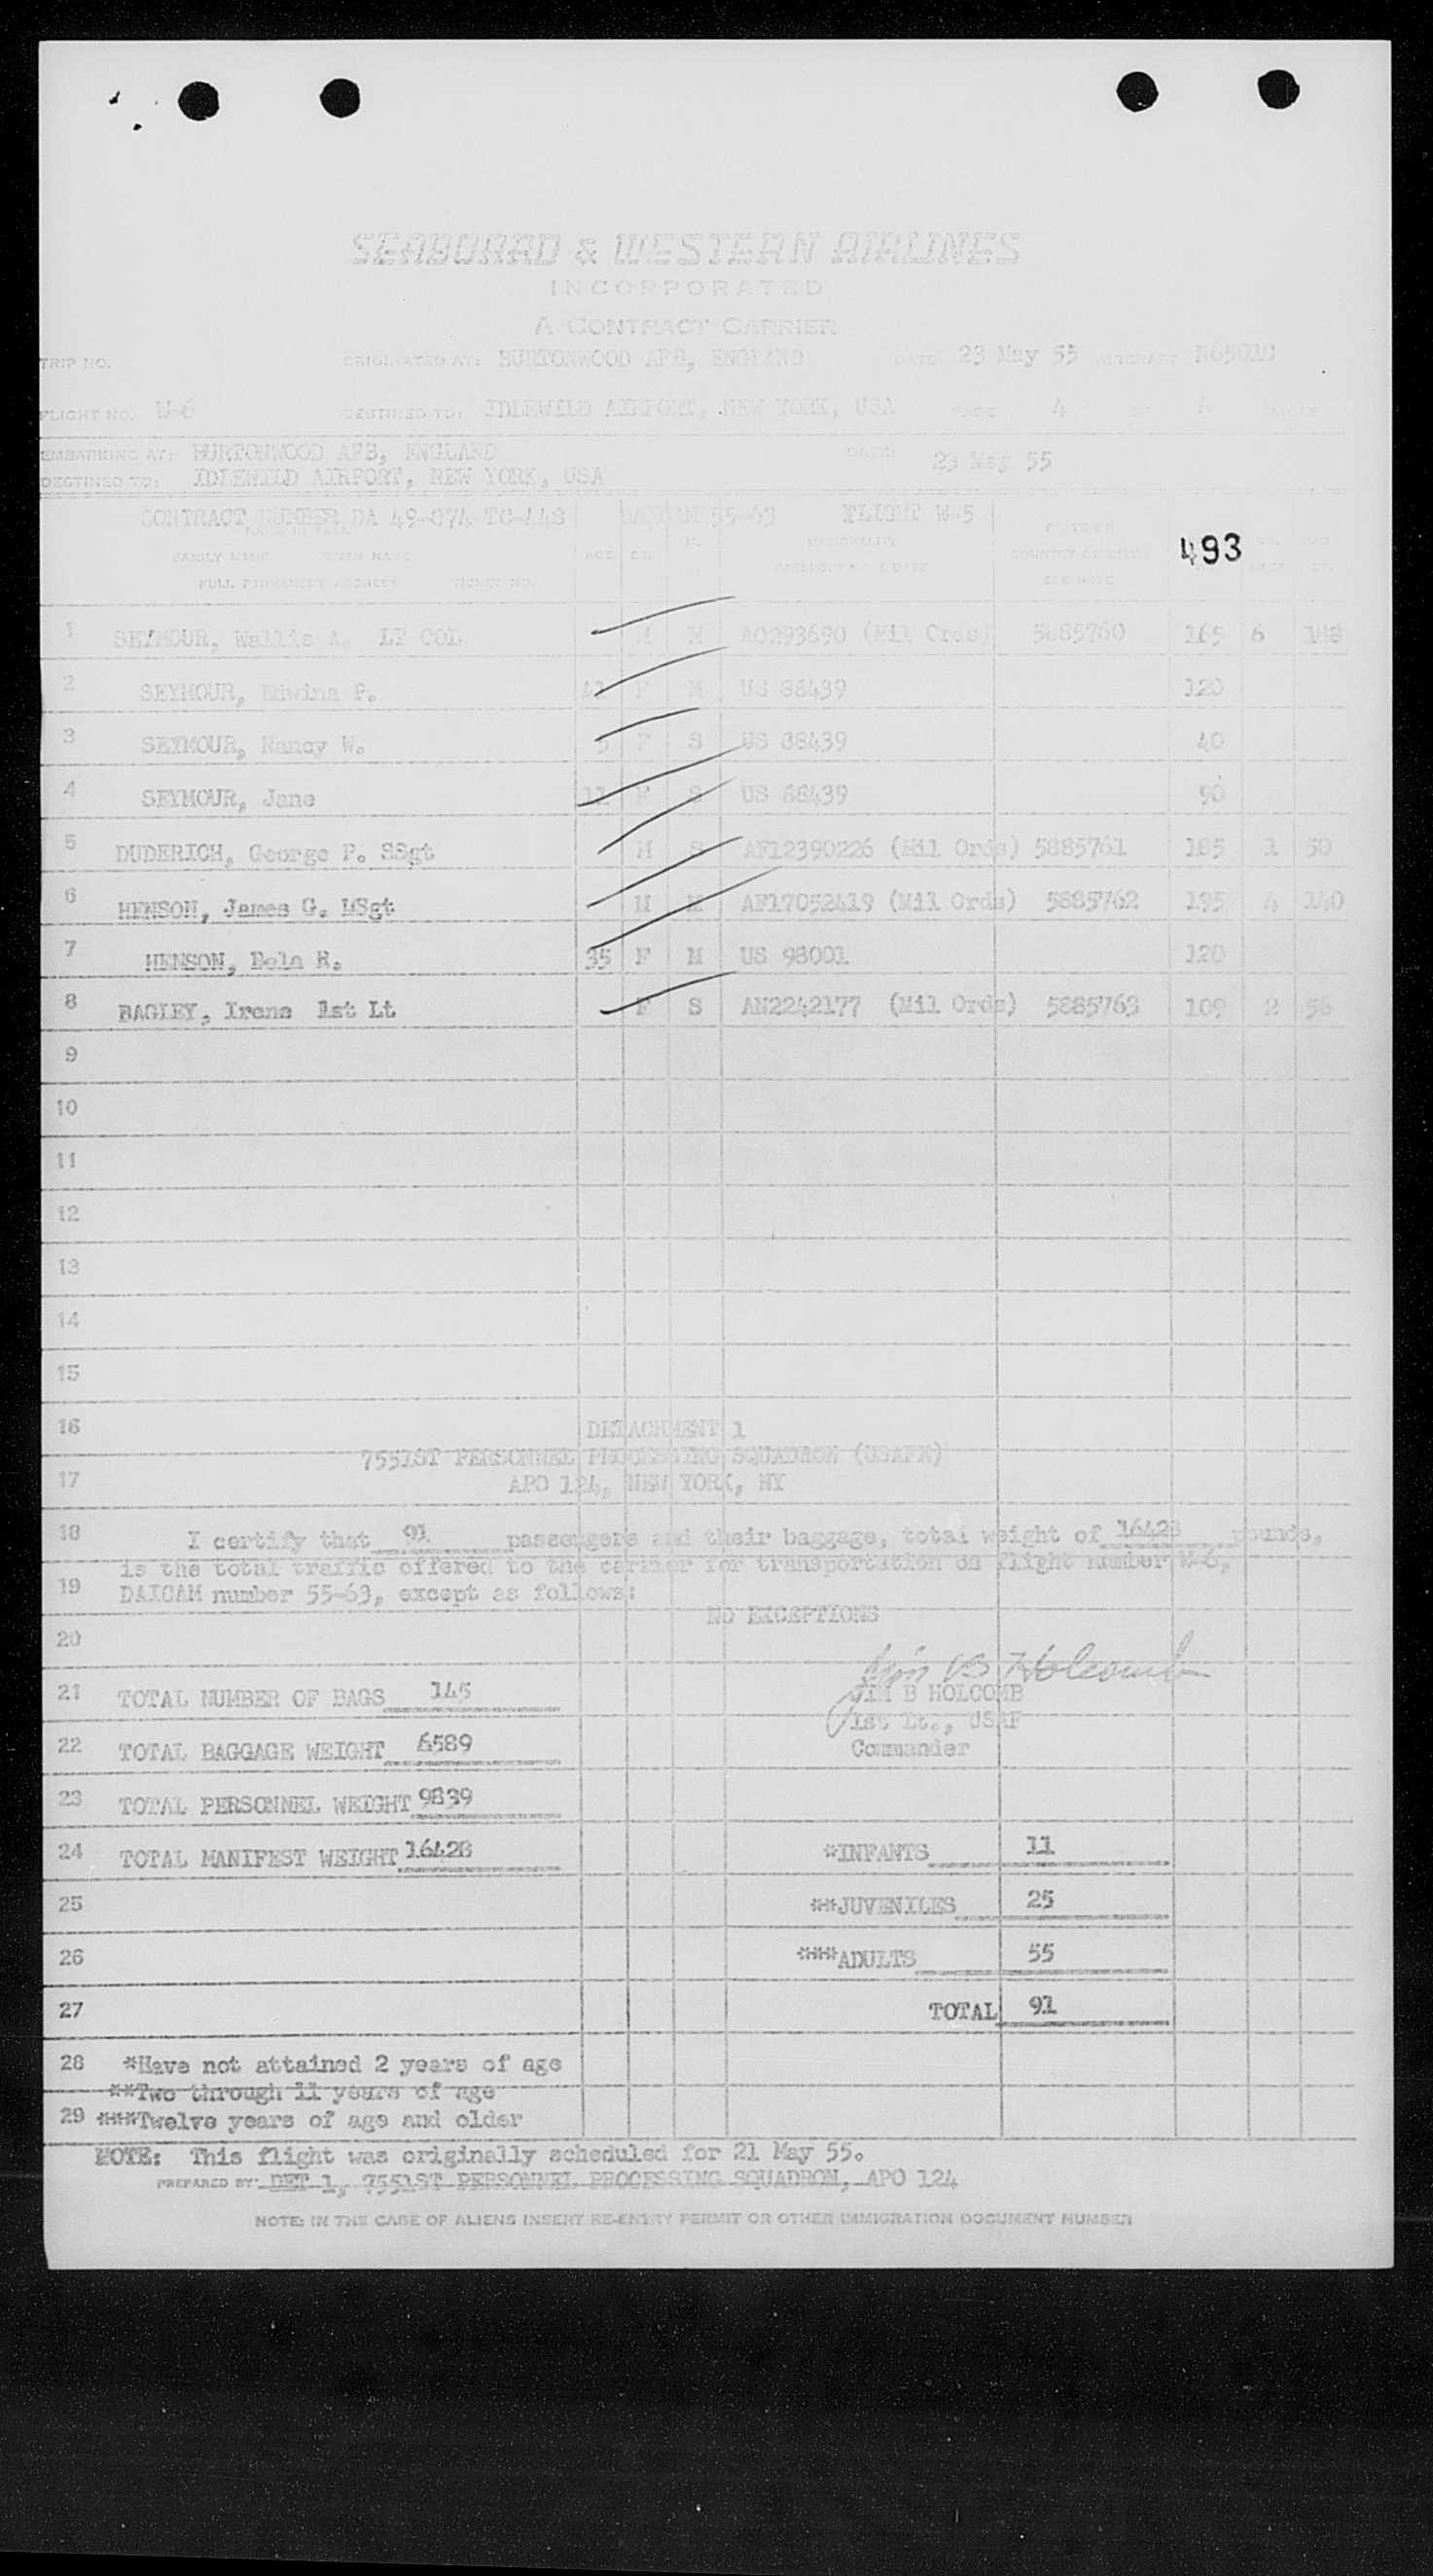 SEABOARD & WESTERN AIRLINES
INCORPORATED
A CONTRACT CARRIER
TRIP NO. ORIGINATED AT: BURTONWOOD AFB, ENGLAND DATE 23 May 55 AIRCRAFT
FLIGHT NO. W-6 DESTINED TO: IDLEWILD AIRPORT, NEW YORK, USA PAGE 4 OF 4 PAGES
EMBARKING AT: BURTONWOOD AFB, ENGLAND DATE: 23 May 55
DESTINED TO: IDLEWILD AIRPORT, NEW YORK, USA
CONTRACT NUMBER DA 49-074-TC-448 55-63 FLIGHT W-5
FAMILY NAME GIVEN NAME AGE NATIONALITY COUNTRY OF 493
FULL PERMANENT ADDRESS TICKET NO.
1 SEYMOUR, Wallis A. LT COL M M AO293690 (Mil Ords) 5885760 165 6 188
2 SEYMOUR, Edwina P. F M US 88439 120
3 SEYMOUR, Nancy W. 5 F S US 88439 40
4 SEYMOUR, Jane 11 F S US 88439 90
5 DUDERICH, George P. SSgt M S AF12390226 (Mil Ords) 5885761 185 1 50
6 HENSON, James G. MSgt M M AF17052419 (Mil Ords) 5885762 195 4 140
7 HENSON, Eola R. 35 F M US 98001 120
8 BAGLEY, Irene 1st Lt F S AN2242177 (Mil Ords) 5885763 109 2 56
9
10
11
12
13
14
15
16 DETACHMENT 1
7551ST PERSONNEL PROCESSING SQUADRON (USAFE)
17 APO 124, NEW YORK, NY
18 I certify that 91 passengers and their baggage, total weight of 16428 pounds,
is the total traffic offered to the carrier for transportation on flight number W-6,
19 DAICAM number 55-63, except as follows:
NO EXCEPTIONS
20
Jim B Holcomb
21 TOTAL NUMBER OF BAGS 145 JIM B HOLCOMB
1st Lt., USAF
22 TOTAL BAGGAGE WEIGHT 6589 Commander
23 TOTAL PERSONNEL WEIGHT 9839
24 TOTAL MANIFEST WEIGHT 16428 *INFANTS 11
25 **JUVENILES 25
26 ***ADULTS 55
27 TOTAL 91
28 *Have not attained 2 years of age
**Two through 11 years of age
29 ***Twelve years of age and older
NOTE: This flight was originally scheduled for 21 May 55.
PREPARED BY: DET 1, 7551ST PERSONNEL PROCESSING SQUADRON, APO 124
NOTE: IN THE CASE OF ALIENS INSERT RE-ENTRY PERMIT OR OTHER IMMIGRATION DOCUMENT NUMBER